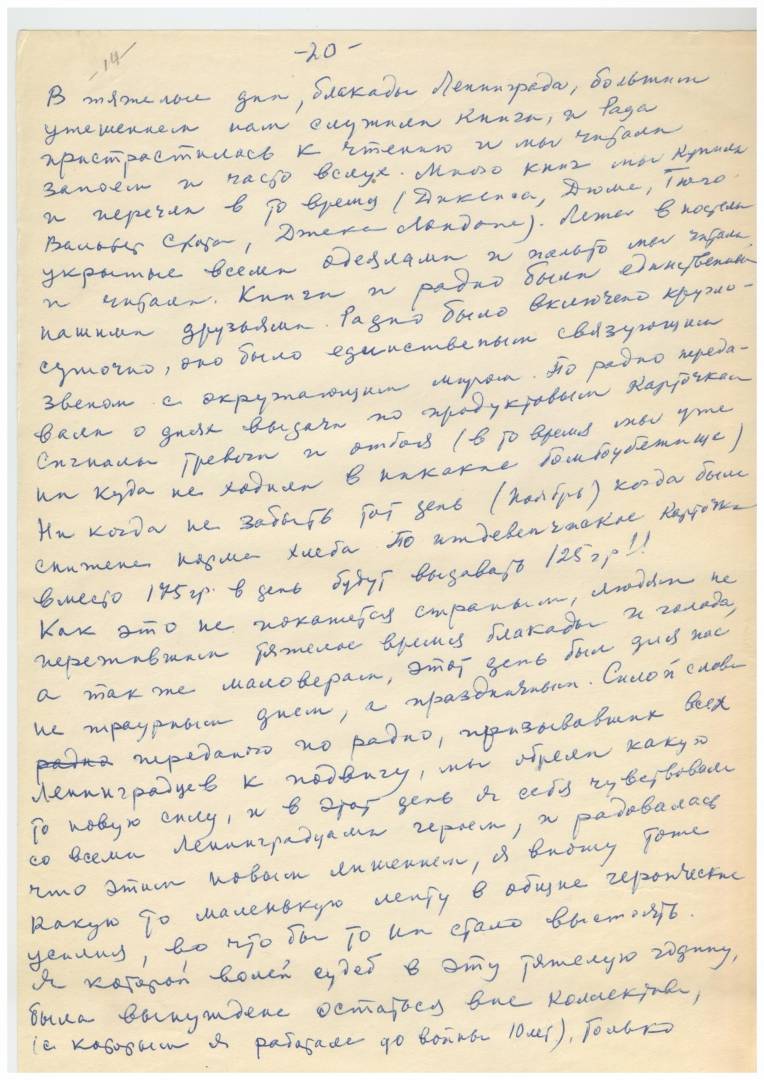 -14-
-20-
В тяжелые дни, блакады Ленинграда, большим
утешением нам служили книги, и Рада
пристрастилась к чтению и мы читали
запоем и часто вслух. Много книг мы купили
и перечли в то время (Дикенса, Дюма, Гюго
Вальтер Скота, Джека Лондона). Лежа в постели
укрытые всеми одеялами и пальто мы читали
и читали. Книги и радио были единственными
нашими друзьями. Радио было включено кругло-
суточно, оно было единственым связующим
звеном с окружающим миром. По радио переда-
вали о днях выдачи по продуктовым карточкам
сигналы тревоги и отбоя (в то время мы уже
ни куда не ходили в никакие бомбоубежище)
Ни когда не забыть тот день (ноябрь) когда были
снижена норма хлеба по иждевенческие карточки
вместо 175 гр. в день будут выдавать 125 гр!!
Как это не покажется страным, людям не
пережившим тяжелое время блакады и голода,
а так же маловерам, этот день был для нас
не траурным днем, а праздничным. Силой слова
радио переданого по радио, призывавших всех
Ленинградцев к подвигу, мы обрели какую
то новую силу, и в этот день я себя чувствовала
со всеми Ленинградцами героем, и радовалась
что этим новым лишением, я вношу тоже
какую то маленькую лепту в общие героические
усилия, во что бы то ни стало выстоять.
Я которой волей судеб в эту тяжелую годину,
была вынуждена остаться вне коллектива,
(с которым я работала до войны 10 лет), только